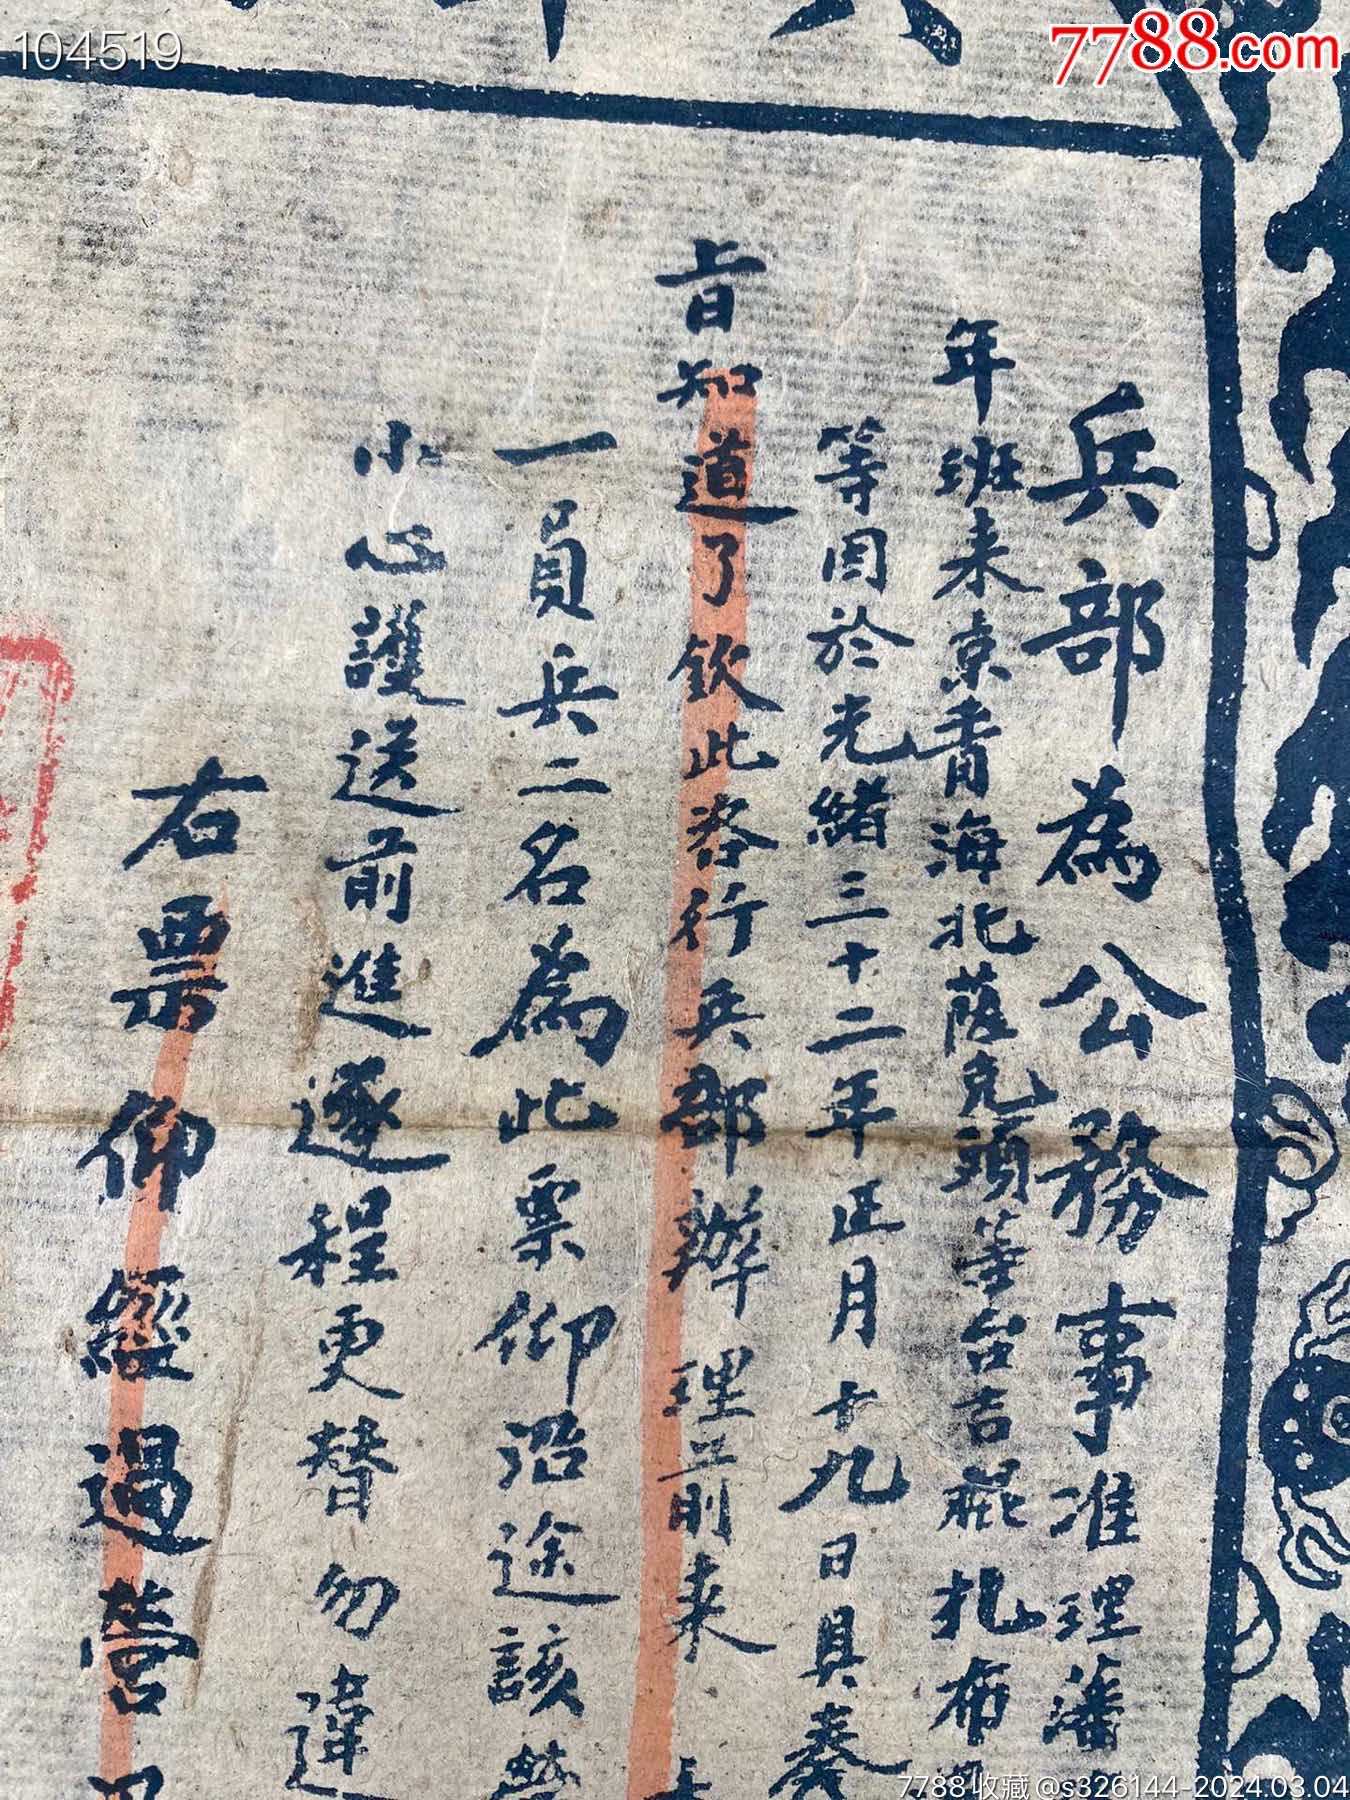 104519
7788.com
兵部為公務事准理藩
年班来京青海北薩克頭等台吉棍扎布
等因於光緒三十二年正月十九日具奏
旨知道了欽此咨行兵部辦理前来
一員兵二名為此票仰沿途該營
小心護送前進逐程更替勿違
右票仰經過營
7788收藏@s326144-2024.03.04